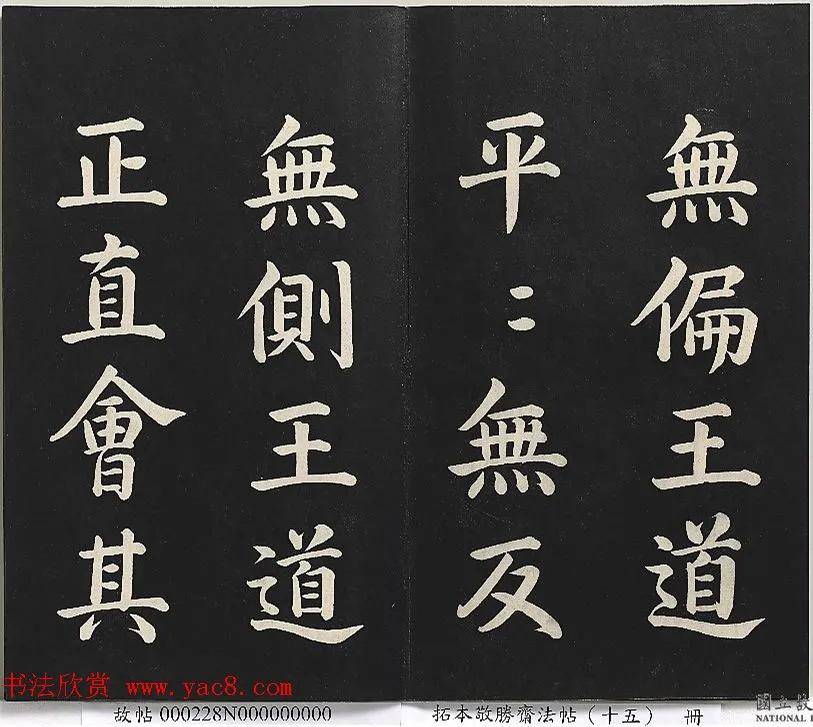 無偏王道
平〻無反
無側王道
正直會其
书法欣赏 www.yac8.com
故帖000228N000000000
拓本敬勝齋法帖（十五） 冊
國立故
NATIONAL